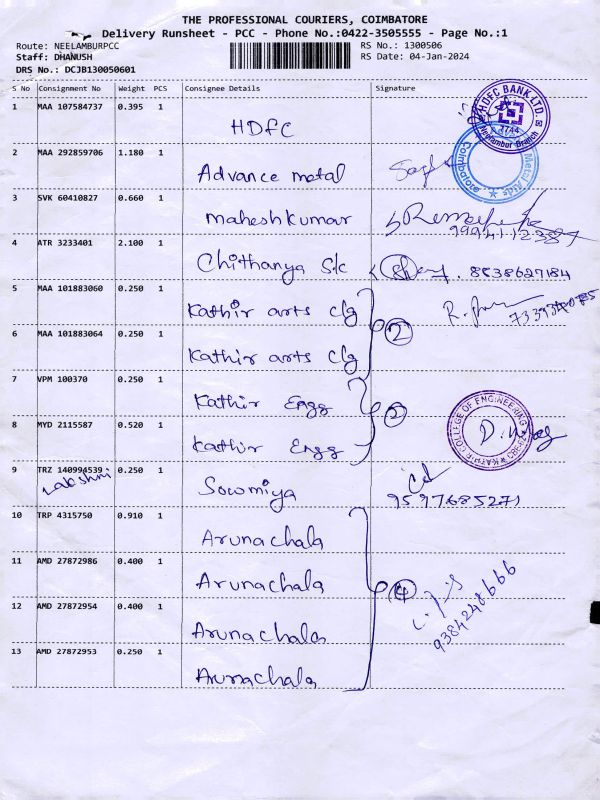 THE PROFESSIONAL COURIERS, COIMBATORE
Delivery Runsheet - PCC - Phone No.:0422-3505555 - Page No.:1
Route: NEELAMBURPCC RS No.: 1300506
Staff: DHANUSH RS Date: 04-Jan-2024
DRS No.: DCJB130050601
S No Consignment No Weight PCS Consignee Details Signature
1 MAA 107584737 0.395 1 HDFC
HDFC BANK LTD. 7744 Neelambur Branch
2 MAA 292859706 1.180 1 Advance metal
Coimbatore
3 SVK 60410827 0.660 1 maheshkumar
4 ATR 3233401 2.100 1 Chithanya S/c 8838627184
5 MAA 101883060 0.250 1 Kathir arts clg
6 MAA 101883064 0.250 1 Kathir arts clg 2
7 VPM 100370 0.250 1 Kathir Engg
8 MYD 2115587 0.520 1 Kathir Engg 2
KATHIR COLLEGE OF ENGINEERING
9 TRZ 140994539 0.250 1 Sowmiya
Lakshmi 9597685271
10 TRP 4315750 0.910 1 Arunachala
11 AMD 27872986 0.400 1 Arunachala
4 9384248666
12 AMD 27872954 0.400 1 Arunachala
13 AMD 27872953 0.250 1 Arunachala